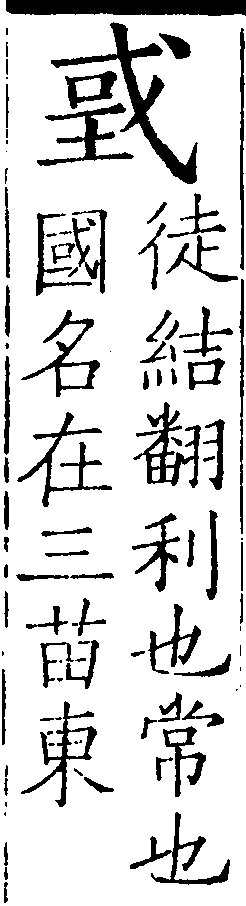 戜
徒結翻利也常也
國名在三苗東